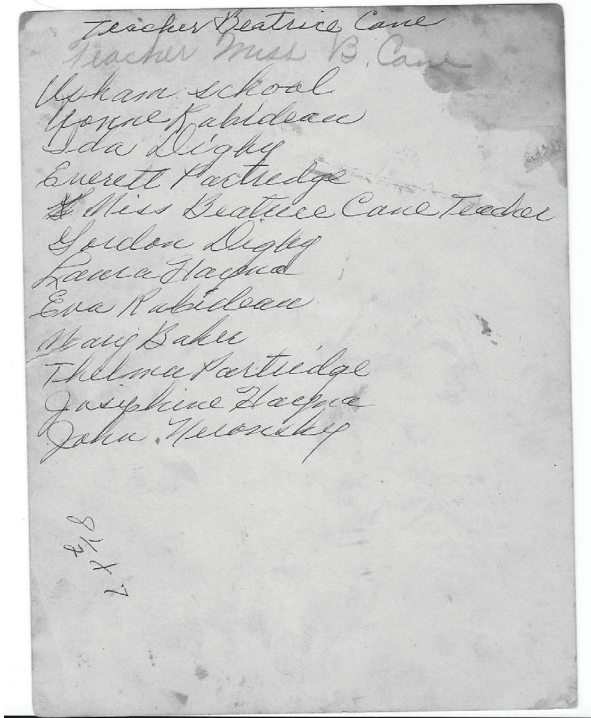 Teacher Beatrice Cane
Teacher Miss B. Cane
school
Yvonne Rabideau
Ida Digby
Everett Partredge
Miss Beatrice Cane Teacher
Gordon Digby
Laura Hayna
Eva Rabideau
Mary Baker
Thelma Partridge
Josephine Hayna
John
8 1/2 x 7